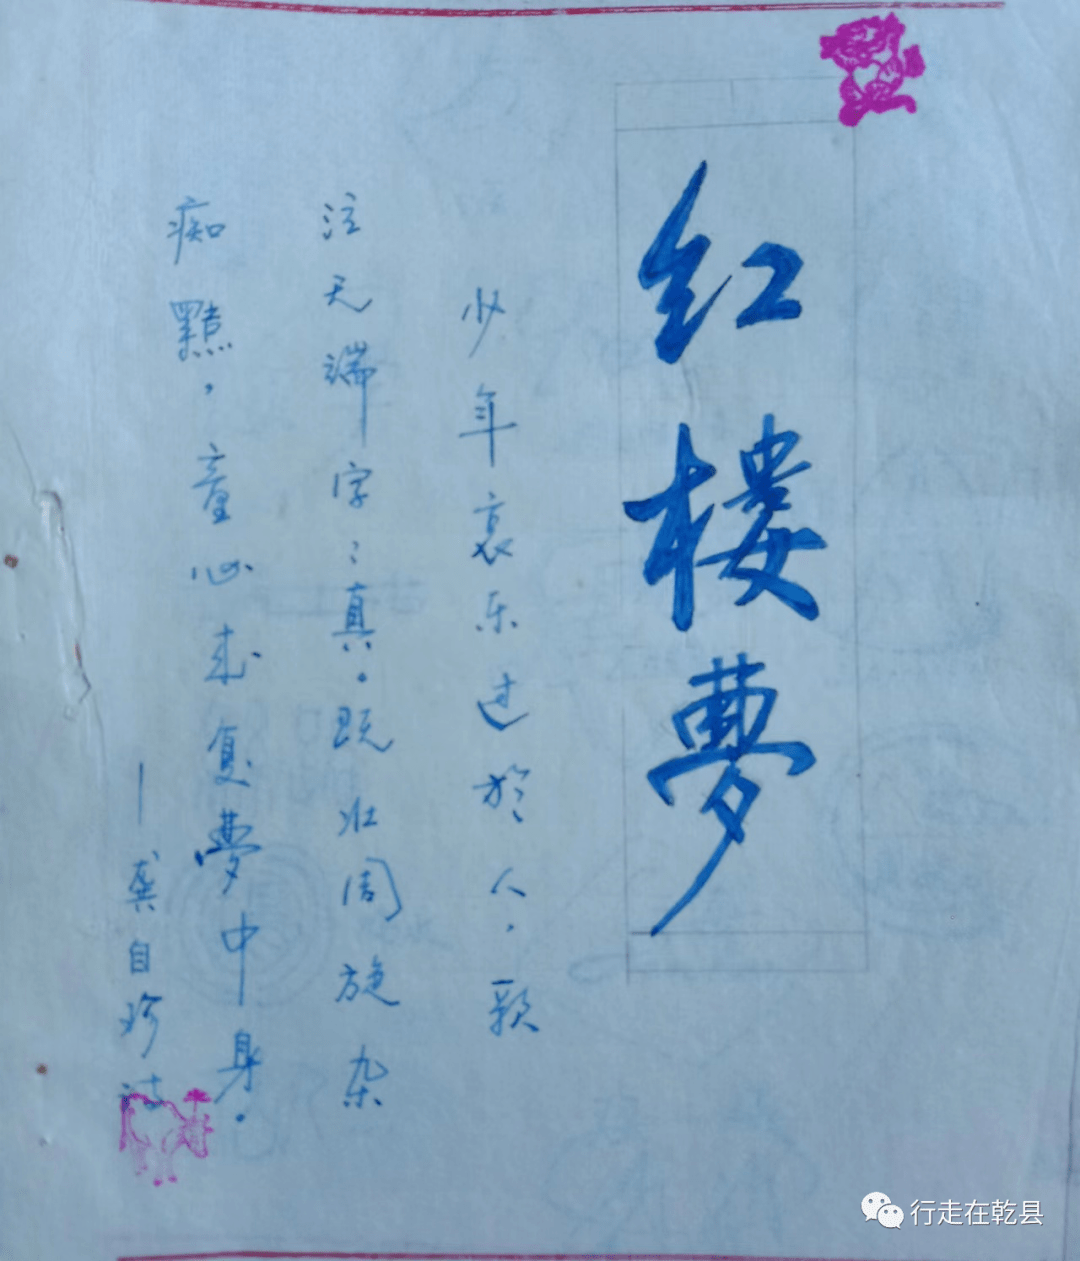 红樓夢
少年哀乐过於人,歌
泣无端字々真。既壮周旋杂
痴黠,童心来复夢中身。
—龚自珍
行走在乾县